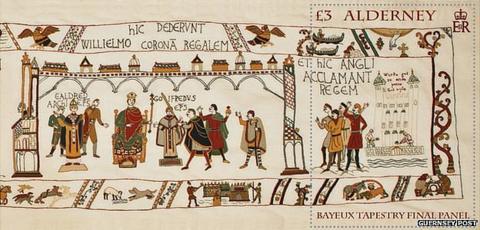 hIC DEDERVNT
WILLIELMO CORONĀ REGALEM
EALDRED
ARCGI
GOIFREDUS
EPS
ET hIC ANGLI
ACCLAMANT
REGEM
£3 ALDERNEY
E R
BAYEUX TAPESTRY FINAL PANEL
GUERNSEY POST